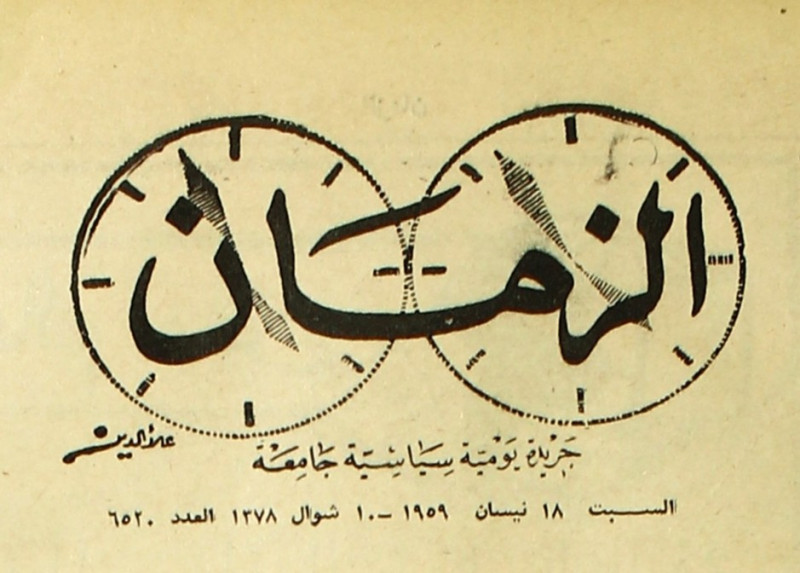 الزمان
جريدة يومية سياسية جامعة
علاء الدين
السبت ١٨ نيسان ١٩٥٩ -١٠ شوال ١٣٧٨ العدد ٦٥٢٠